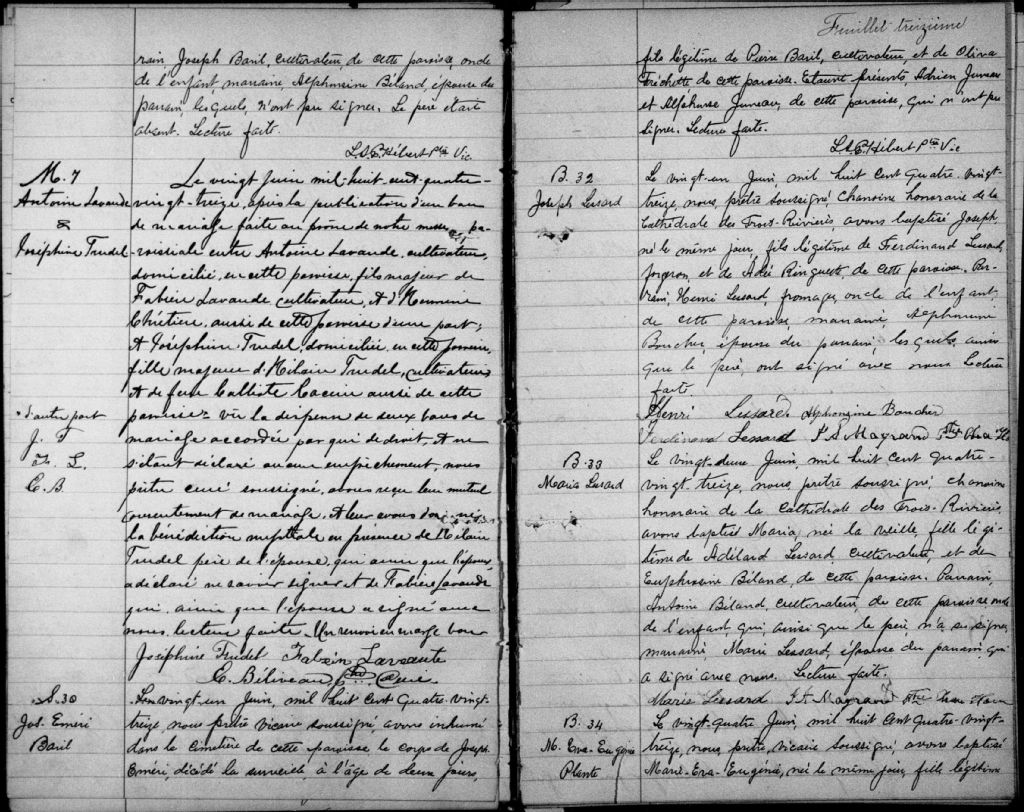 rain, Joseph Baril, cultivateur, de cette paroisse, oncle
de l'enfant, marraine, Alphonsine Béland, épouse du
parrain, lesquels, n'ont pu signer. Le père étant
absent. Lecture faite.
L.S.E. Hébert Ptre Vic
M. 7
Antoine Lavande
&
Joséphine Trudel
Le vingt Juin mil-huit-cent-quatre-
vingt-treize, après la publication d'un ban
de mariage faite au prône de notre messe pa-
roissiale entre Antoine Lavande, cultivateur,
domicilié, en cette paroisse, fils majeur de
Fabien Lavande, cultivateur, & d'
Chrétien, aussi de cette paroisse d'une part;
& Joséphine Trudel, domiciliée, en cette paroisse,
fille majeure d'Hilaire Trudel, cultivateur
& de feue Calliste aussi de cette
paroisse = vu la dispense de deux bans de
mariage accordée par qui de droit. & ne
s'étant déclaré aucun empêchement, nous
prêtre curé soussigné, avons reçu leur mutuel
consentement de mariage. & leur avons donné
la bénédiction nuptiale en présence de Hilaire
Trudel père de l'épouse, qui ainsi que l'époux,
a déclaré ne savoir signer & de Fabien Lavande
qui, ainsi que l'épouse a signé avec
nous. lecture faite. Un renvoi en marge bon
d'autre part
J. T
F. L.
C. B.
Joséphine Trudel Fabien Lavaute
C. Béliveau Ptre Curé
S. 30
Jos. Eméri
Baril
Le vingt-un Juin, mil huit Cent Quatre-vingt-
treize, nous prêtre vicaire soussigné, avons inhumé
dans le cimetière de cette paroisse le corps de Joseph-
Eméri, décédé la surveille à l'âge de deux jours,
Feuillet treizième
fils légitime de Pierre Baril, cultivateur, et de Olivia
Fréchette de cette paroisse. Etaient présents, Adrien Juneau
et Alphonse Juneau, de cette paroisse, qui n'ont pu
signer. Lecture faite.
L.S.E. Hébert Ptre Vic
B. 32
Joseph Lessard
Le vingt-un Juin, mil huit Cent Quatre-vingt-
treize, nous, prêtre soussigné Chanoine honoraire de la
Cathédrale des Trois-Rivières, avons baptisé Joseph,
né le même jour, fils légitime de Ferdinand Lessard,
forgeron, et de Adée Ringuette, de cette paroisse. Par-
rain, Henri Lessard, fromager, oncle de l'enfant,
de cette paroisse, marraine, Alphonsine
Boucher, épouse du parrain, lesquels, ainsi
que le père, ont signé avec nous Lecture
faite.
Henri Lessard Alphonsine Boucher
Ferdinand Lessard F. S. Magnan Ptre Cha. Ho
B. 33
Maria Lessard
Le vingt-deux Juin, mil huit Cent Quatre-
vingt-treize, nous, prêtre soussigné, chanoine
honoraire de la Cathédrale des Trois-Rivières,
avons baptisé Maria, née la veille, fille légi-
time de Adélard Lessard, cultivateur, et de
Euphrosine Béland, de cette paroisse. Parrain,
Antoine Béland, cultivateur, de cette paroisse oncle
de l'enfant, qui, ainsi que le père, n'a su signer,
marraine, Marie Lessard, épouse du parrain, qui
a signé avec nous. Lecture faite.
Marie Lessard Ptre Chan Hon
B. 34
M. Eva-Eugénie
Plante
Le vingt-quatre Juin, mil huit Cent Quatre-vingt-
treize, nous, prêtre, vicaire soussigné, avons baptisé
Marie-Eva-Eugénie, née le même jour, fille légitime